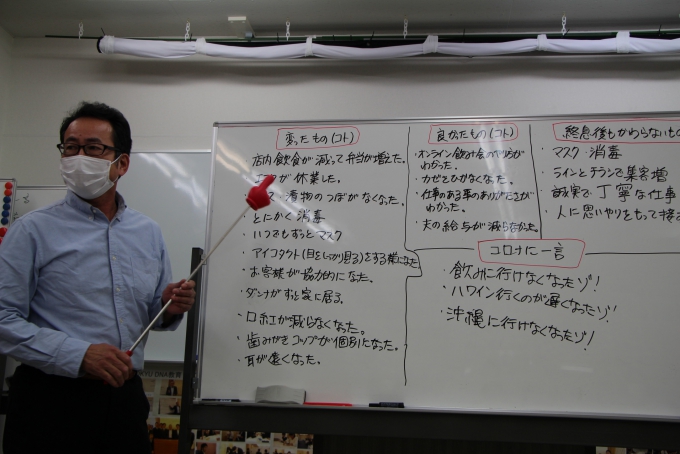 変ったもの(コト)
店内飲食が減って弁当が増えた。
が休業した。
漬物のつぼがなくなった。
・とにかく消毒
・いつでもずっとマスク
・アイコンタクト(目をしっかり見る)をする様になった
・お客様が協力的になった。
・ダンナがずっと家に居る。
・口紅が減らなくなった。
・歯みがきコップが個別になった。
・耳が遠くなった。
良かったもの(コト)
・オンライン飲み会のやり方が
わかった。
・カゼをひかなくなった。
・仕事のある事のありがたさが
わかった。
・夫の給与が減らなかった。
終息後もかわらないもの
・マスク・消毒
・ラインとチラシで集客増
・誠実で丁寧な仕事
・人に思いやりをもって接する
コロナに一言
・飲みに行けなくなったゾ!
・ハワイン行くのが遅くなったゾ!
・沖縄に行けなくなったゾ!